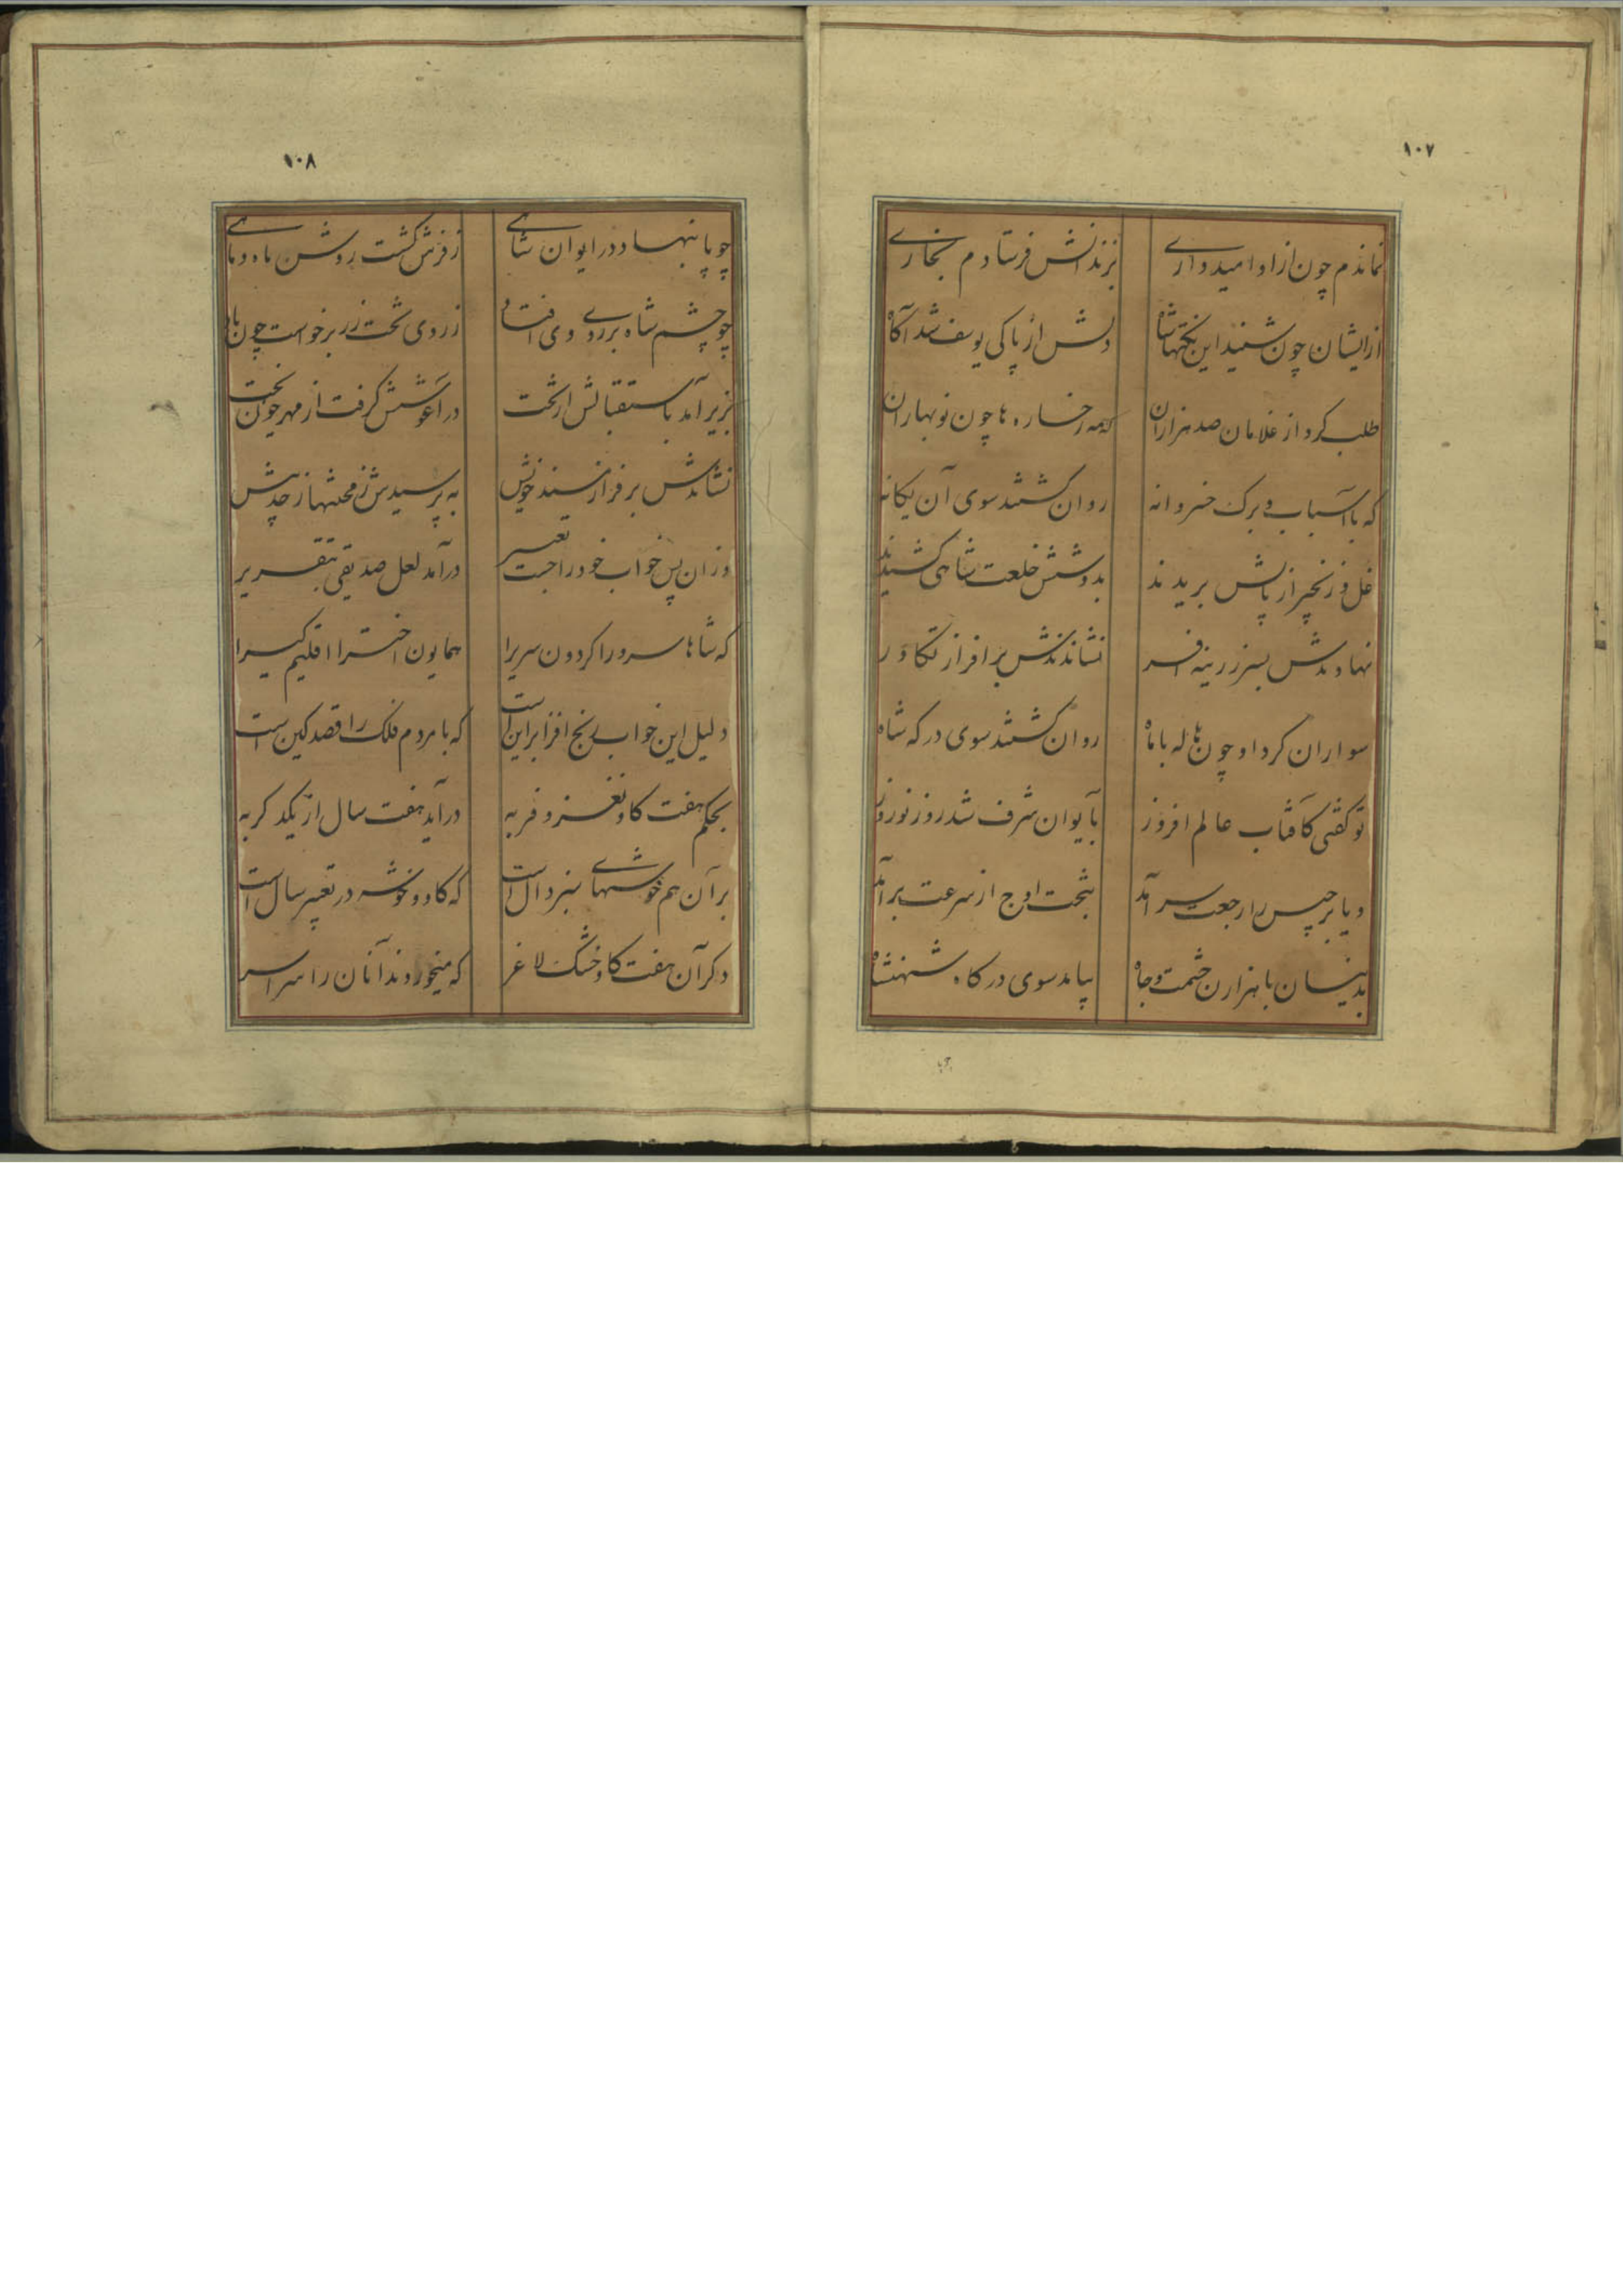 ۱۰۷
نماندم چون ازاو امیدواری بزندانش فرستادم بخاری
ازایشان چون شنید این نکتهها شاه دلش از پاکی یوسف شد آگاه
طلب کرد از غلامان صد هزاران که مه رخساره ها چون نوبهاران
که با اسباب و برک خسروانه روان کشتند سوی آن یکانه
غل و زنجیر از پایش بریدند بدوشش خلعت شاهی کشیدند
نهادندش بسر زرینه افسر نشاندندش بر افراز تکاور
سواران کرد او چون هاله با ماه روان کشتند سوی درکه شاه
تو کفتی کآفتاب عالم افروز بایوان شرف شد روز نوروز
و یا برجیس را رجعت سر آمد بتخت اوج از سرعت برآمد
بدینسان با هزارن حشمت و جاه بیامد سوی درکاه شهنشاه
چوپا
۱۰۸
چو پا بنهاد در ایوان شاهی ز فرش کشت روشن ماه و ماهی
چو چشم شاه بر روی وی افتاد ز روی تخت زر برخواست چون باد
بزیر آمد باستقبالش از تخت در آغوشش کرفت از مهر چون بخت
نشاندش بر فراز مسند خویش به پرسیدش ز محنتها از حد بیش
وزان پس خواب خود را جست تعبیر درآمد لعل صدیقی بتقریر
که شاها سرورا کردون سریرا همایون اخترا اقلیم کیرا
دلیل این خواب رنج افزا براین است که با مردم فلک را قصد کین است
بحکم هفت کاو نغز و فربه درآید هفت سال از یکدکر به
برآن هم خوشهای سبز دال است که کاو و خوشه در تعبیر سال است
دکر آن هفت کاو خشک لاغر که میخوردند آنان را سراسر